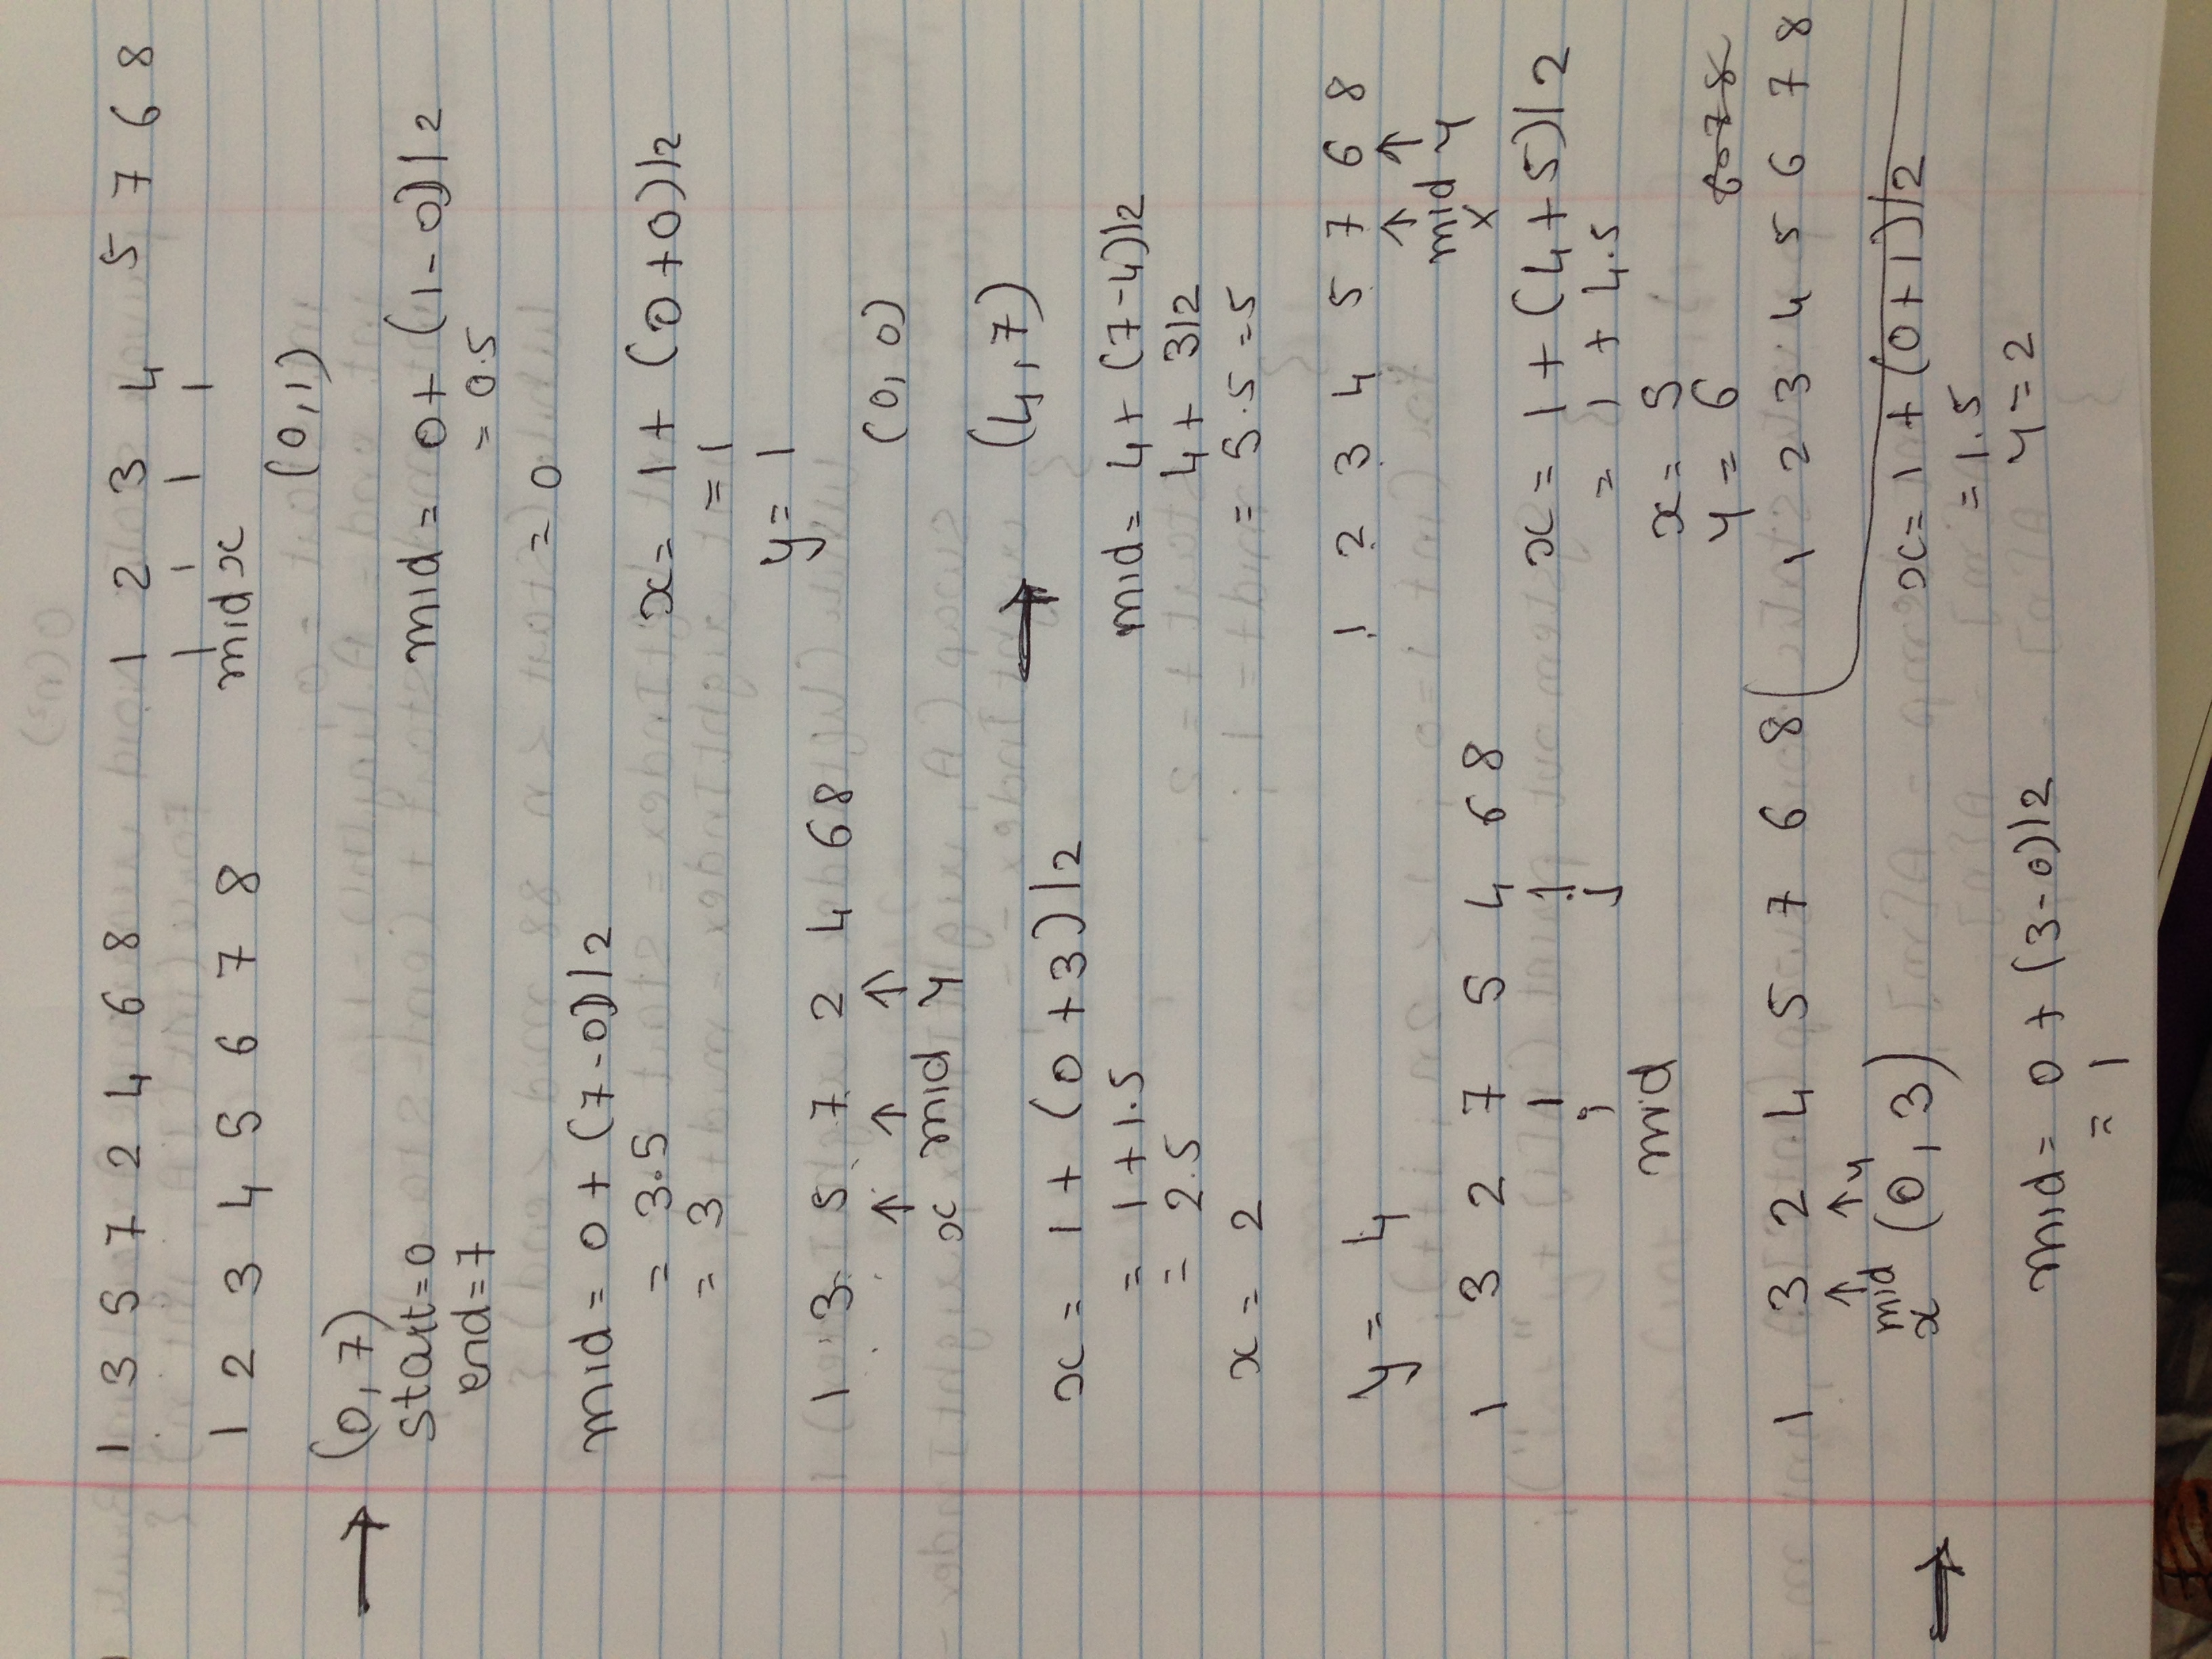 1 3 5 7 2 4 6 8
1 2 3 4 5 6 7 8
(0, 7)
start = 0
end = 7
mid = 0 + (7-0)/2
= 3.5
= 3
1 3 5 7 2 4 6 8
x mid y
x = 1 + (0 + 3)/2
= 1 + 1.5
= 2.5
x = 2
y = 4
1 3 2 7 5 4 6 8
i j
mid
1 3 2 4 5 7 6 8
mid y
x (0, 3)
mid = 0 + (3-0)/2
= 1
1 2 3 4 5 7 6 8
mid x
(0,1)
mid = 0 + (1-0)/2
= 0.5
= 0
x = 1 + (0+0)/2
= 1
y = 1
(0, 0)
(4, 7)
mid = 4 + (7-4)/2
4 + 3/2
= 5.5 = 5
1 2 3 4 5 7 6 8
mid y
x
x = 1 + (4+5)/2
= 1 + 4.5
x = 5
y = 6
1 2 3 4 5 6 7 8
x = 1 + (0+1)/2
= 1.5
y = 2